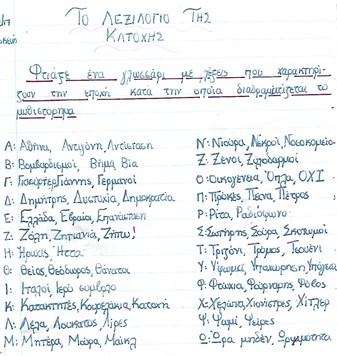 Το Λεξιλόγιο Της
Κατοχής
Φτιάξε ένα γλωσσάρι με λέξεις που χαρακτηρί-
ζουν την εποχή κατά την οποία διαδραματίζεται το
μυθιστόρημα
Α: Αθήνα, Αντιγόνη, Αντίσταση
Β: Βομβαρδισμοί, Βήμα, Βία
Γ: Γιαούρτερ Γιάννης, Γερμανοί
Δ: Δημήτρης, Δυστυχία, Δημοκρατία
Ε: Ελλάδα, Εβραίοι, Επανάσταση
Ζ: Ζάλη, Ζητιανιά, Ζήτω!
Η: Ήρωες, Ήττα
Θ: Θείος, Θεόδωρος, Θάνατοι
Ι: Ιταλοί, Ιερό σύμβολο
Κ: Κατακτητές, Κουρελάκια, Κατοχή
Λ: Λέλα, Λουκατως, Λίρες
Μ: Μητέρα, Μαύρα, Μάικλ
Ν: Ντιούρα, Νεκροί, Νοσοκομείο
Ξ: Ξένοι, Ξυλοδαρμοί
Ο: Οικογένεια, Όπλα, ΟΧΙ
Π: Πρόκες, Πείνα, Πέτρος
Ρ: Ρίτα, Ραδιόφωνο
Σ: Σωτήρης, Σαύρα, Σκοτωμοί
Τ: Τριζόνι, Τρόμος, Τσουένι
Υ: Ύψωμα, Υποχώρηση,
Φ: Φασκιά, Φούρναρης, Φόβος
Χ: Χελώνα, Χιονίστρες, Χίτλερ
Ψ: Ψωμί, Ψείρες
Ω: Ώρα μηδέν, Ωριμότητα